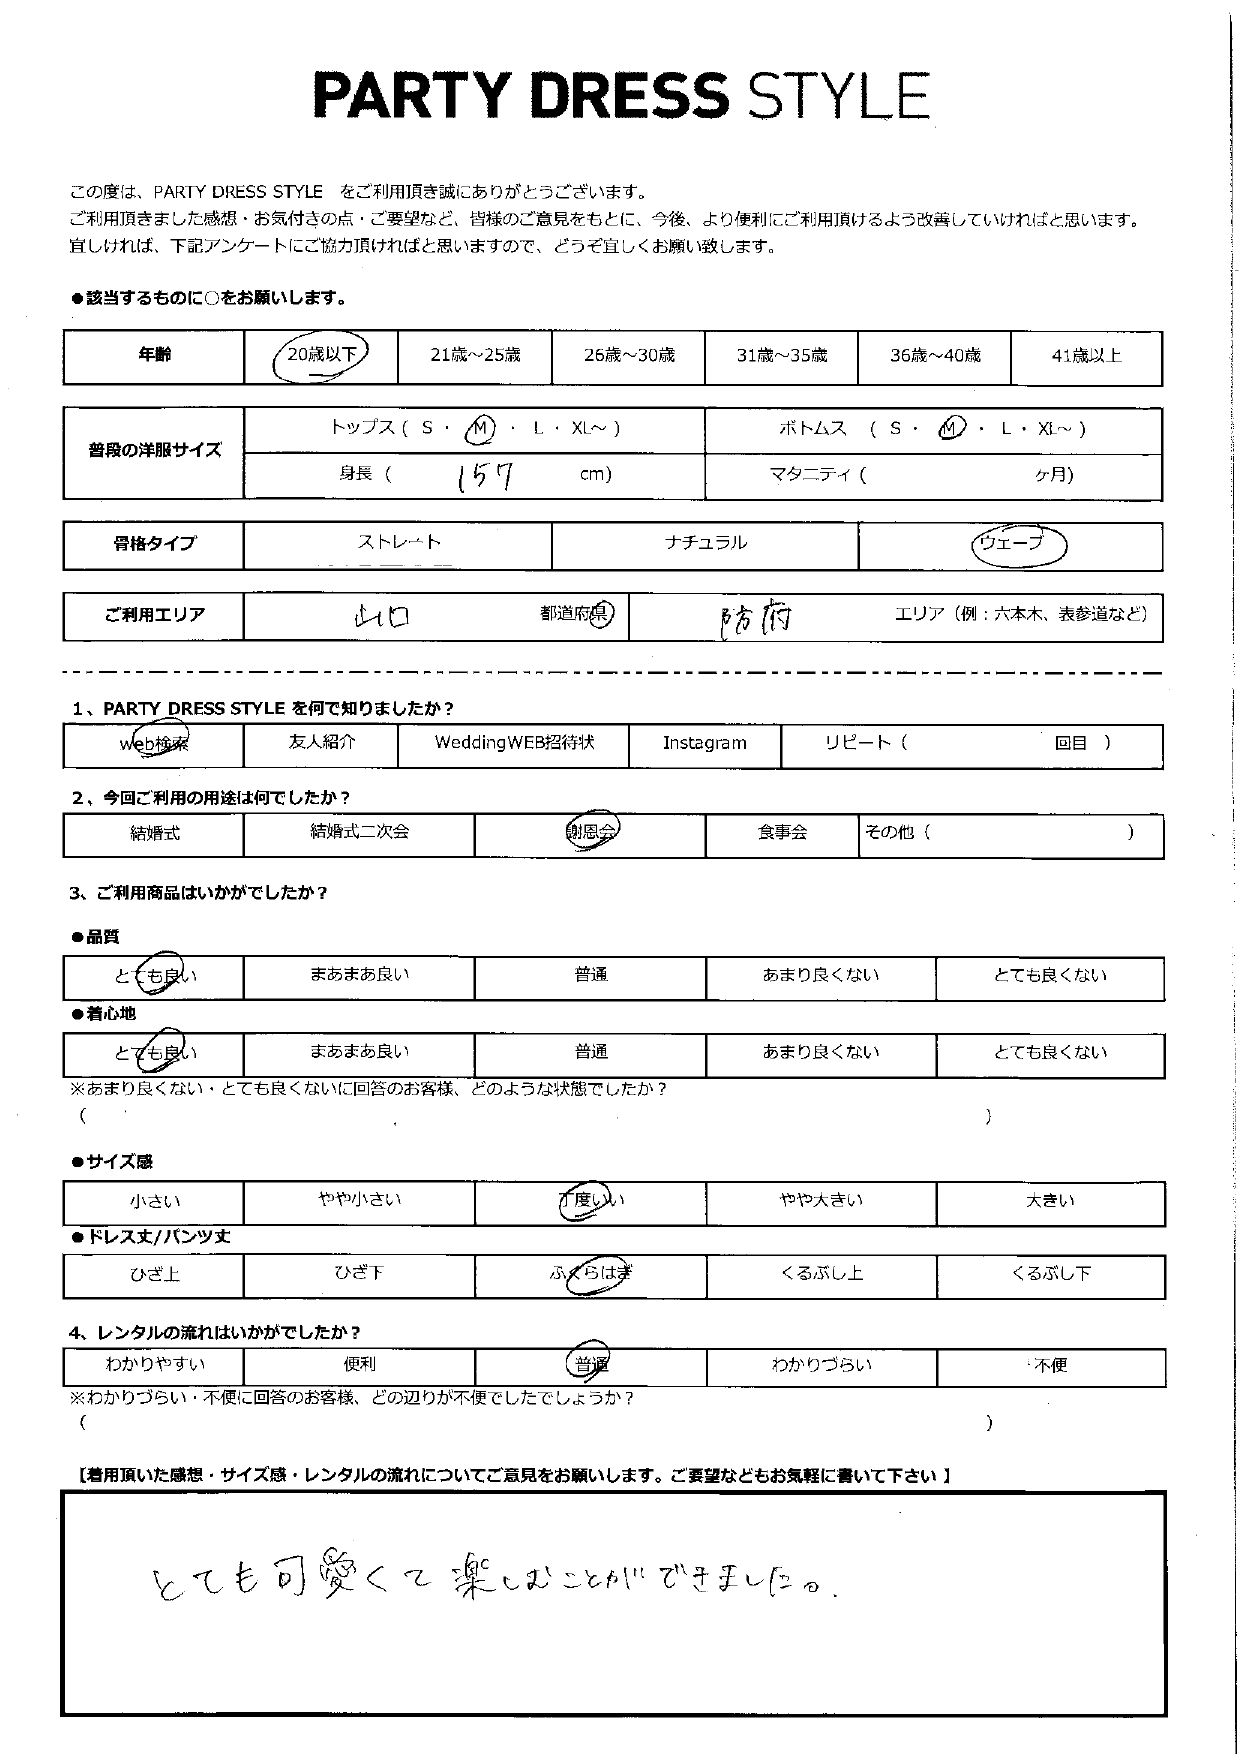 PARTY DRESS STYLE
この度は、PARTY DRESS STYLE をご利用頂き誠にありがとうございます。
ご利用頂きました感想・お気付きの点・ご要望など、皆様のご意見をもとに、今後、より便利にご利用頂けるよう改善していければと思います。
宜しければ、下記アンケートにご協力頂ければと思いますので、どうぞ宜しくお願い致します。
●該当するものに○をお願いします。
年齢 20歳以下 21歳～25歳 26歳～30歳 31歳～35歳 36歳～40歳 41歳以上
普段の洋服サイズ
トップス ( S ・ M ・ L ・ XL～ ) ボトムス ( S ・ M ・ L ・ XL～ )
身長 ( 157 cm) マタニティ ( ヶ月)
骨格タイプ ストレート ナチュラル ウェーブ
ご利用エリア 山口 都道府県 防府 エリア（例：六本木、表参道など）
1、PARTY DRESS STYLE を何で知りましたか？
web検索 友人紹介 WeddingWEB招待状 Instagram リピート ( 回目 )
2、今回ご利用の用途は何でしたか？
結婚式 結婚式二次会 謝恩会 食事会 その他 ( )
3、ご利用商品はいかがでしたか？
●品質
とても良い まあまあ良い 普通 あまり良くない とても良くない
●着心地
とても良い まあまあ良い 普通 あまり良くない とても良くない
※あまり良くない・とても良くないに回答のお客様、どのような状態でしたか？
( )
●サイズ感
小さい やや小さい 丁度いい やや大きい 大きい
●ドレス丈/パンツ丈
ひざ上 ひざ下 ふくらはぎ くるぶし上 くるぶし下
4、レンタルの流れはいかがでしたか？
わかりやすい 便利 普通 わかりづらい 不便
※わかりづらい・不便に回答のお客様、どの辺りが不便でしたでしょうか？
( )
【着用頂いた感想・サイズ感・レンタルの流れについてご意見をお願いします。ご要望などもお気軽に書いて下さい 】
とても可愛くて楽しむことができました。